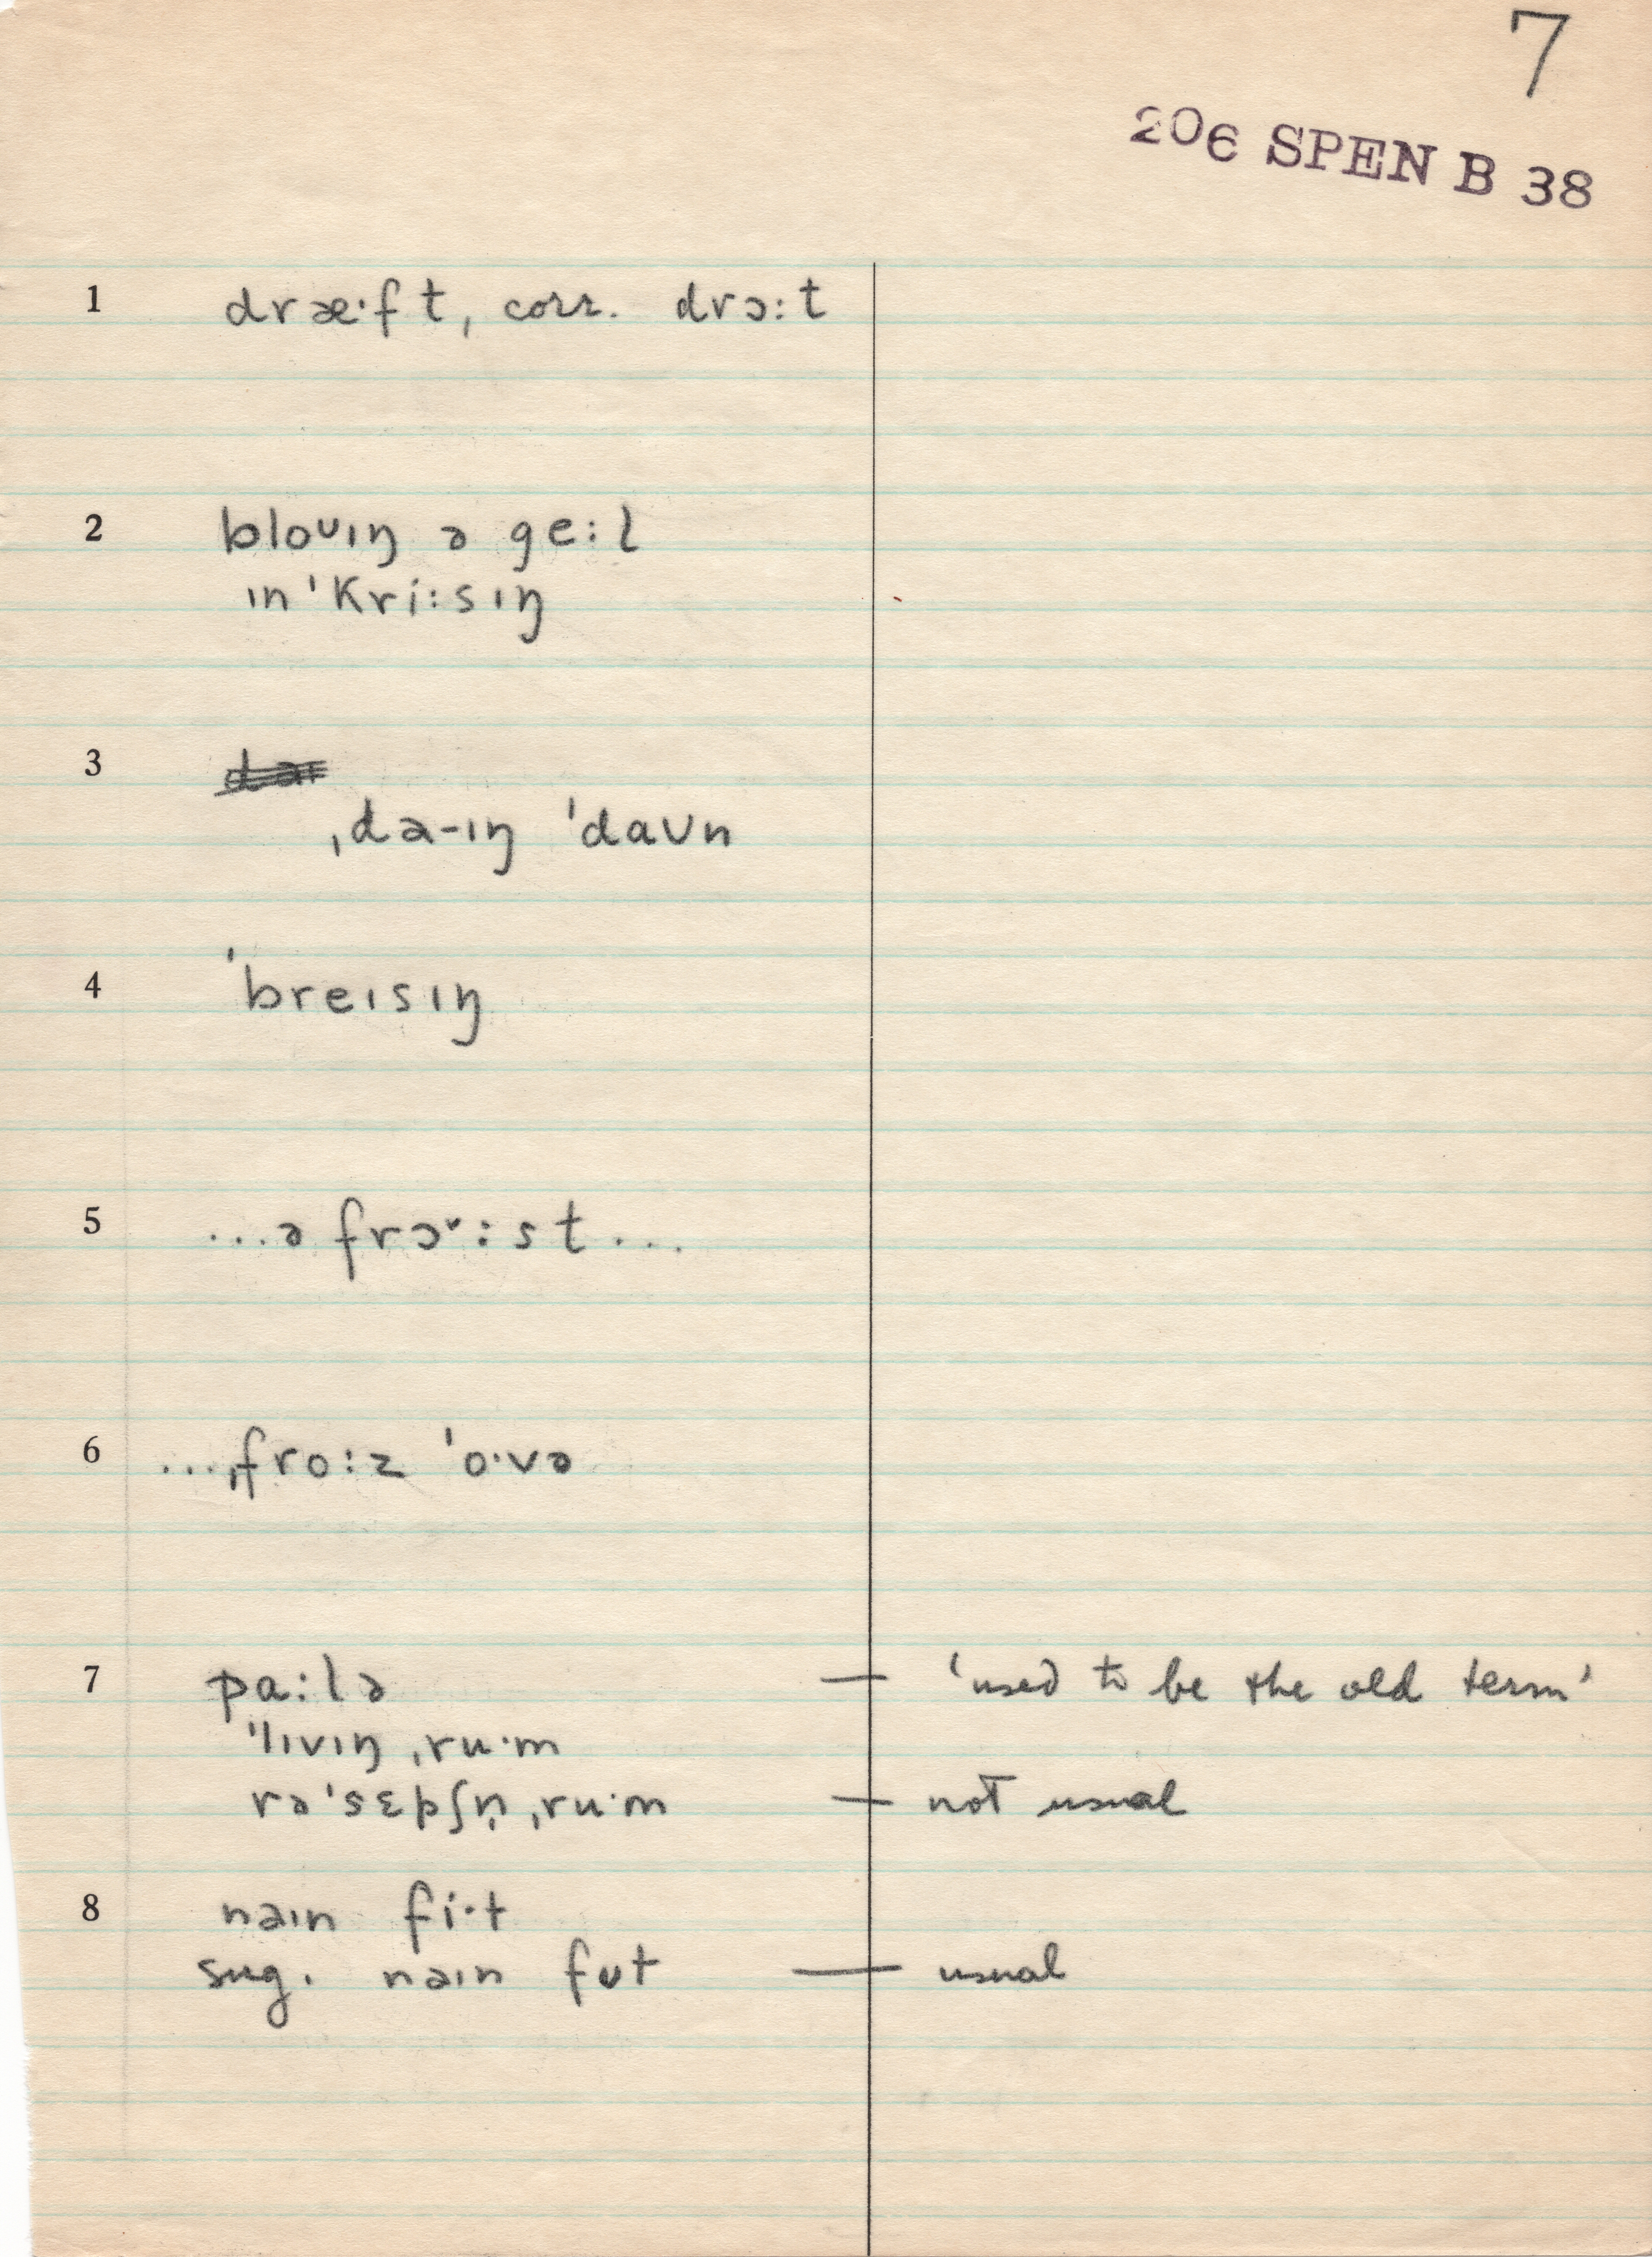 7
206 SPEN B 38
1 dræ·ft, corr. drɔ:t
2 bloᴜɪŋ ə ge:l
ɪn'kri:sɪŋ
3 ˌdaɪ-ɪŋ 'daᴜn
4 'breɪsɪŋ
5 ...ə frɔ˅:st...
6 ...ˌfro:z 'o·və
7 pa:lə — 'used to be the old term'
'lɪvɪŋ ˌru·m
rə'sɛpʃn̩ ˌru·m — not usual
8 naɪn fi·t
sug. naɪn fᴜt — usual